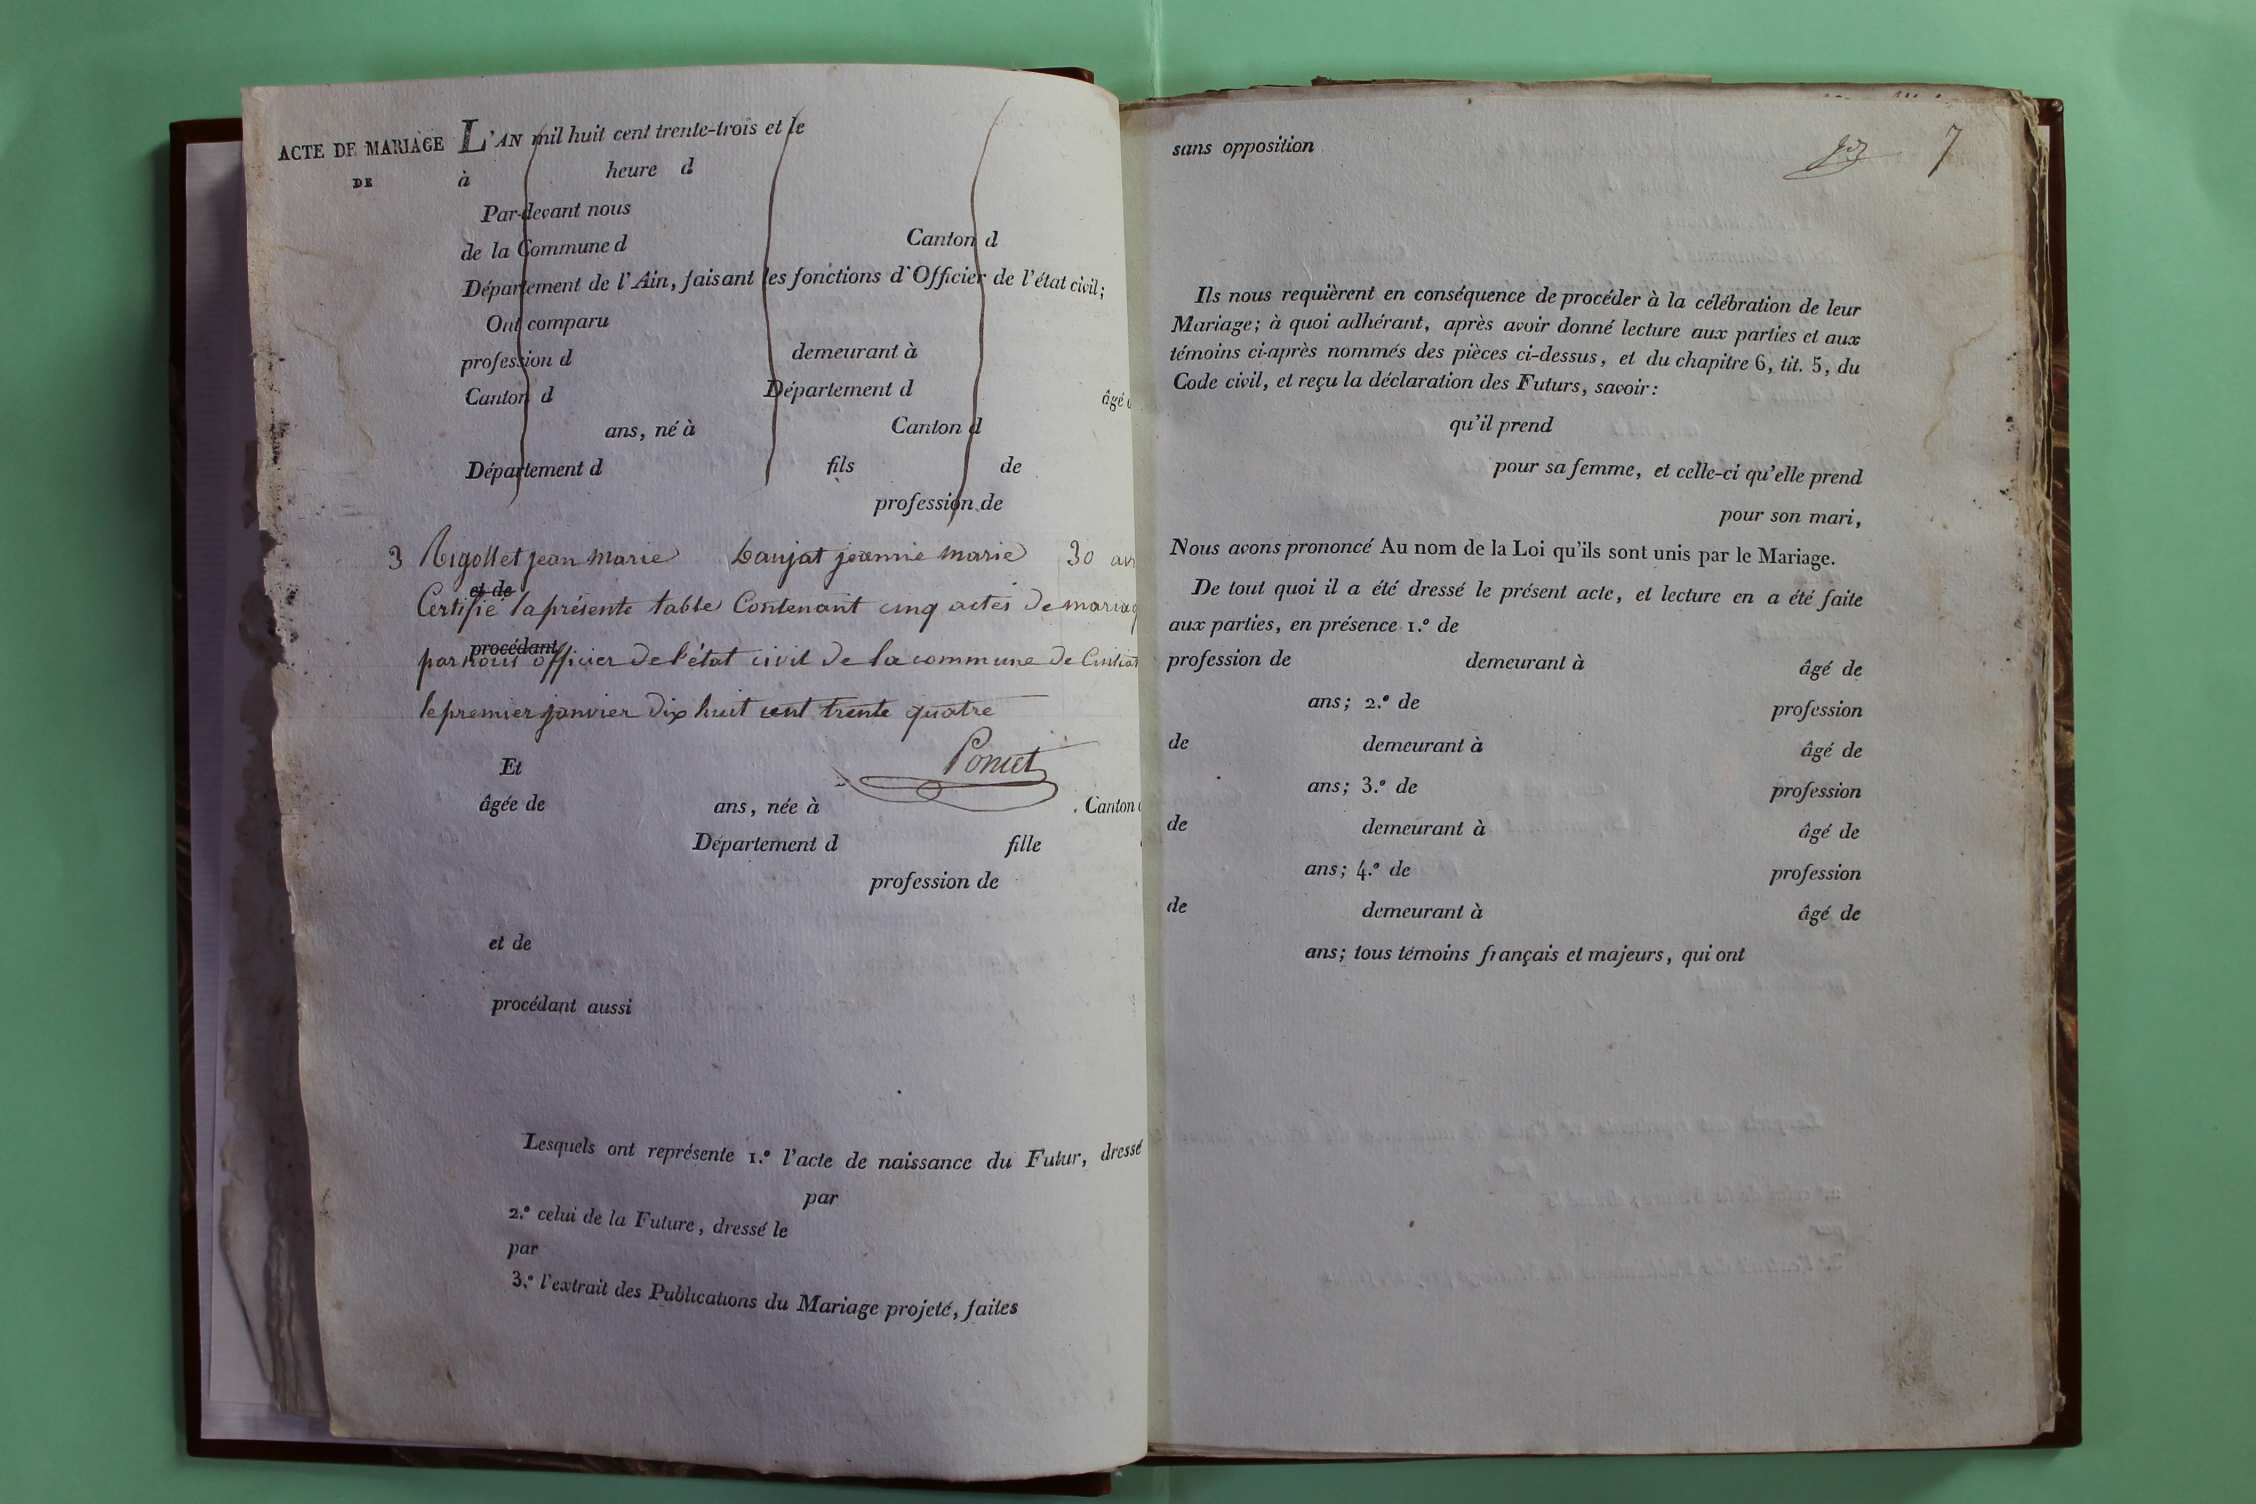 ACTE DE MARIAGE L'AN mil huit cent trente-trois et le
DE à heure d
Par-devant nous
de la Commune d Canton d
Département de l'Ain, faisant les fonctions d'Officier de l'état civil;
Ont comparu
profession d demeurant à
Canton d Département d âgé
ans, né à Canton d
Département d fils de
profession de
3 Rigollet jean marie Laujat jeanne marie 30 avr
et de
Certifie la présente table Contenant cinq actes de mariag
procédant
par nous officier de l'état civil de la commune de
le premier janvier dix huit cent trente quatre
Poncet
Et
âgée de ans, née à Canton
Département d fille
profession de
et de
procédant aussi
Lesquels ont représenté 1.º l'acte de naissance du Futur, dressé
par
2.º celui de la Future, dressé le
par
3.º l'extrait des Publications du Mariage projeté, faites
sans opposition
7
Ils nous requièrent en conséquence de procéder à la célébration de leur
Mariage; à quoi adhérant, après avoir donné lecture aux parties et aux
témoins ci-après nommés des pièces ci-dessus, et du chapitre 6, tit. 5, du
Code civil, et reçu la déclaration des Futurs, savoir:
qu'il prend
pour sa femme, et celle-ci qu'elle prend
pour son mari,
Nous avons prononcé Au nom de la Loi qu'ils sont unis par le Mariage.
De tout quoi il a été dressé le présent acte, et lecture en a été faite
aux parties, en présence 1.º de
profession de demeurant à âgé de
ans; 2.º de profession
de demeurant à âgé de
ans; 3.º de profession
de demeurant à âgé de
ans; 4.º de profession
de demeurant à âgé de
ans; tous témoins français et majeurs, qui ont